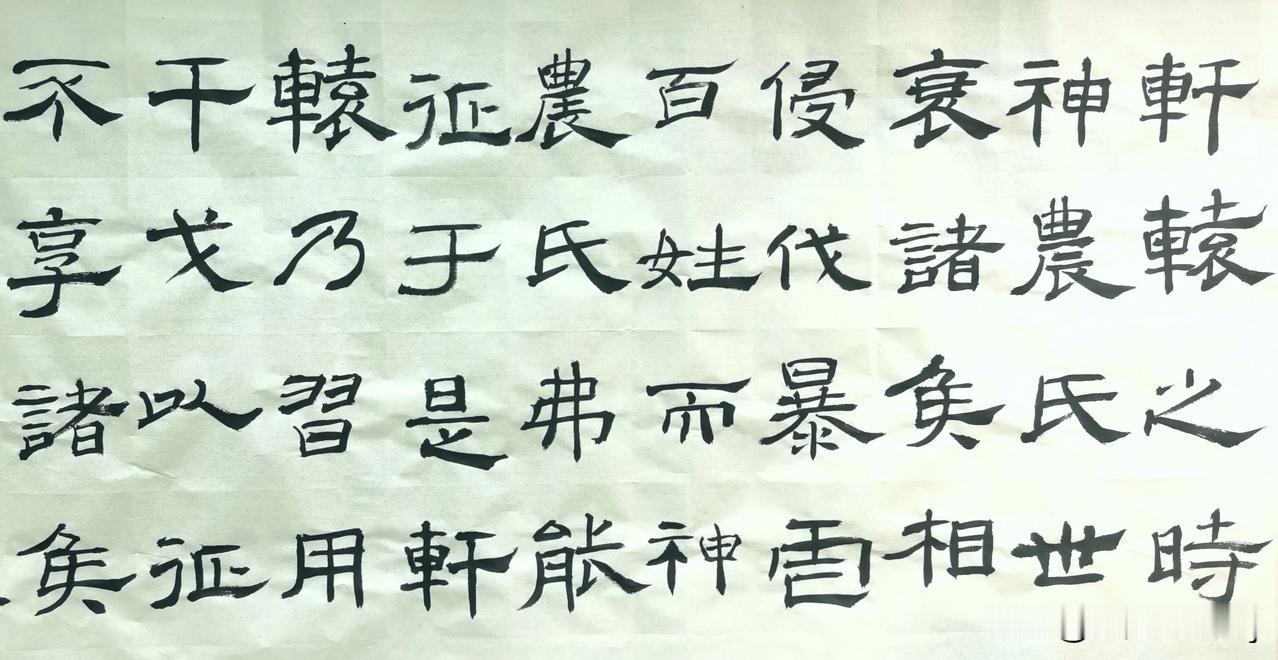 軒轅之時
神農氏世
衰諸矦相
侵伐暴虐
百姓而神
農氏弗能
征于是軒
轅乃習用
干戈以征
不享諸矦